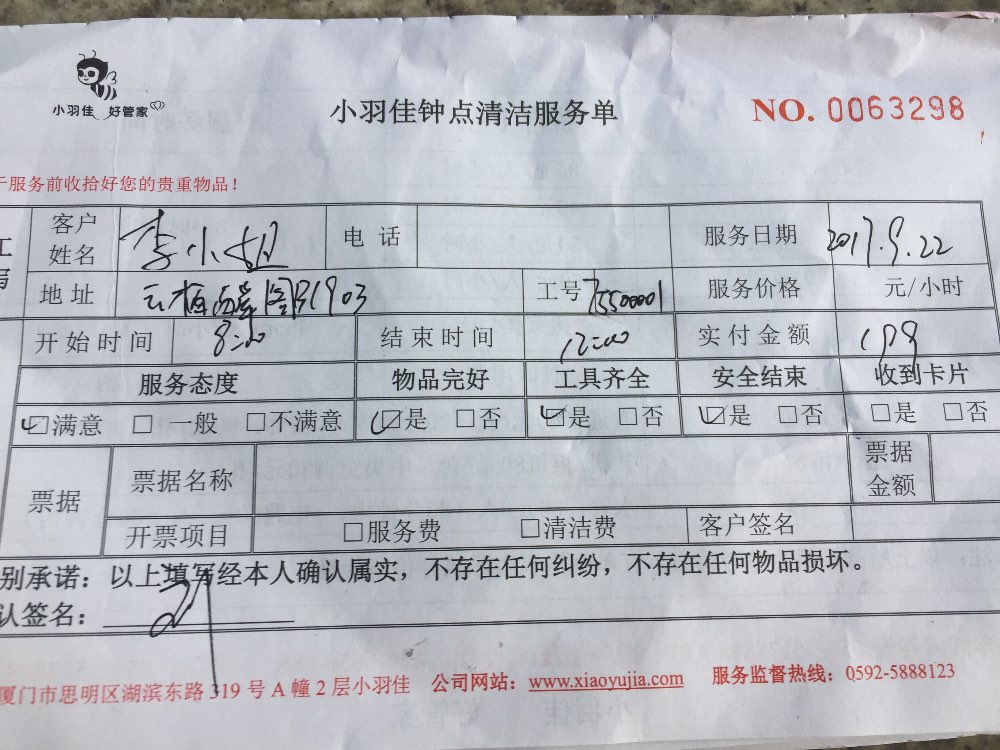 小羽佳 好管家
小羽佳钟点清洁服务单
NO. 0063298
于服务前收拾好您的贵重物品！
客户姓名 李小姐 电 话 服务日期 2017.9.22
地 址 1903 工号 7550001 服务价格 元/小时
开始时间 8:00 结束时间 12:00 实付金额
服务态度 物品完好 工具齐全 安全结束 收到卡片
☑满意 □ 一般 □不满意 ☑是 □否 ☑是 □否 ☑是 □否 □是 □否
票据 票据名称 票据金额
开票项目 □服务费 □清洁费 客户签名
别承诺：以上填写经本人确认属实，不存在任何纠纷，不存在任何物品损坏。
认签名：
厦门市思明区湖滨东路 319 号 A 幢 2 层小羽佳 公司网站：www.xiaoyujia.com 服务监督热线：0592-5888123